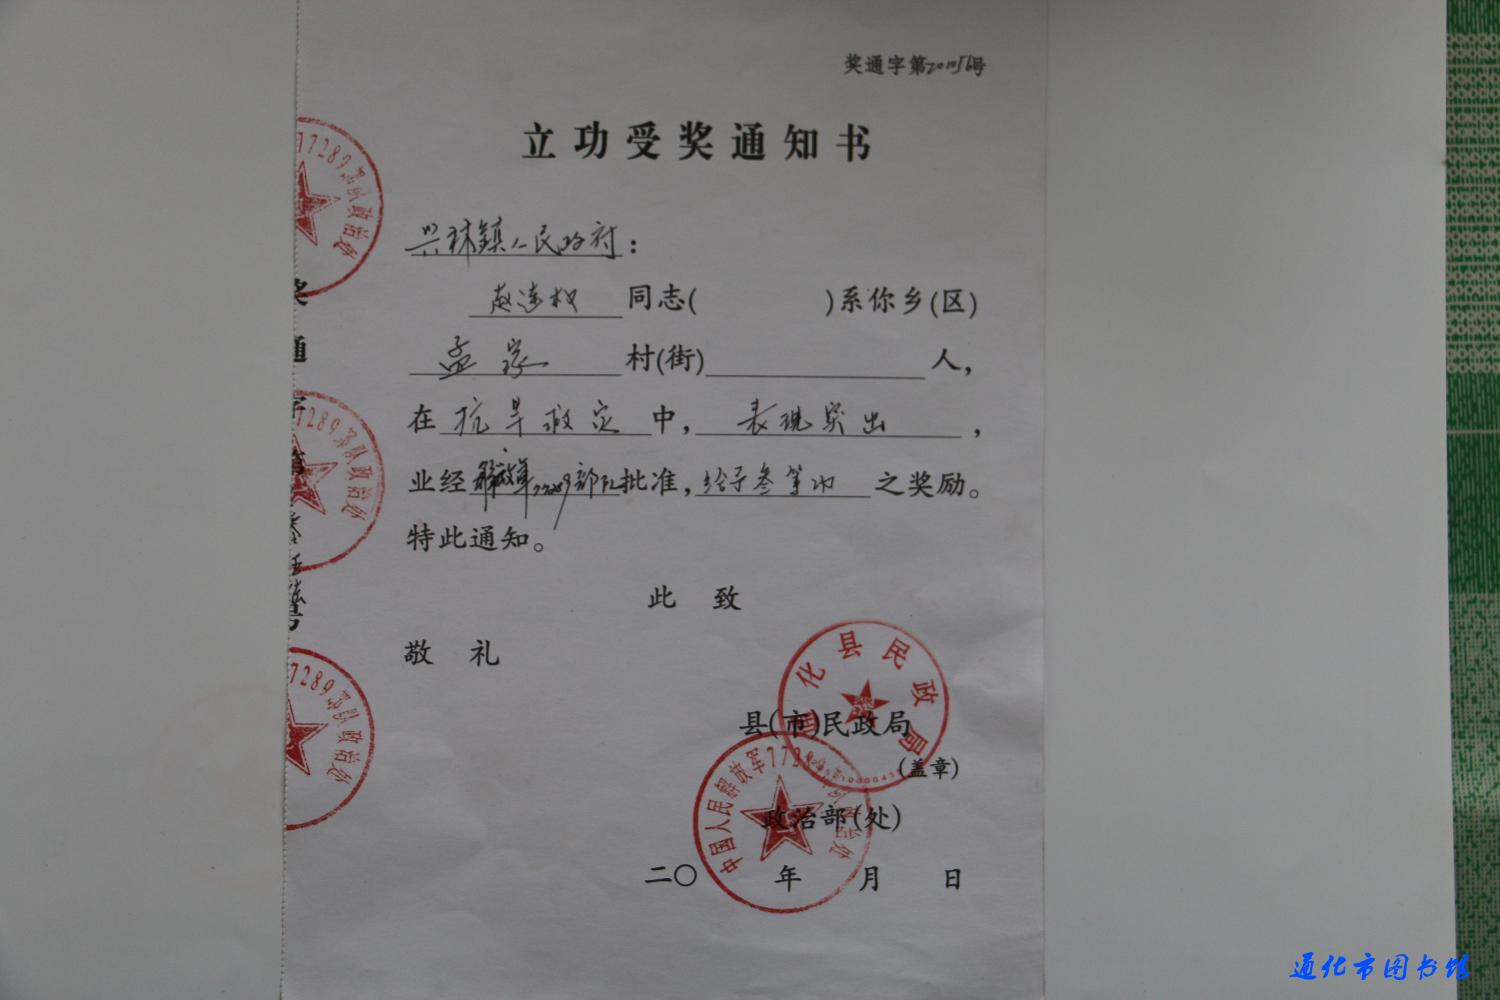 奖通字第201056号
立功受奖通知书
兴林镇人民政府：
赵连权 同志( )系你乡(区)
孟家 村(街) 人，
在 抗旱救灾 中，表现突出，
业经解放军77289部队批准，给予叁等功 之奖励。
特此通知。
此 致
敬 礼
县(市)民政局
(盖章)
政治部(处)
二〇 年 月 日
通化县民政局
中国人民解放军77289部队政治处
77289部队政治处
77289部队政治处
77289部队政治处
奖通字第
号
通化市图书馆